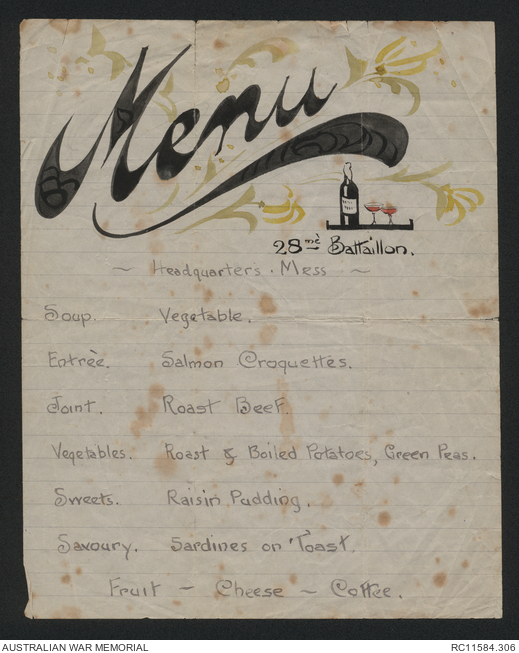 Menu
28mè Battaillon.
~ Headquarters. Mess ~
Soup. Vegetable.
Entrèe. Salmon Croquettès.
Joint. Roast Beef.
Vegetables. Roast & Boiled Potatoes, Green Peas.
Sweets. Raisin Pudding.
Savoury. Sardines on Toast.
Fruit ~ Cheese ~ Coffee.
AUSTRALIAN WAR MEMORIAL RC11584.306